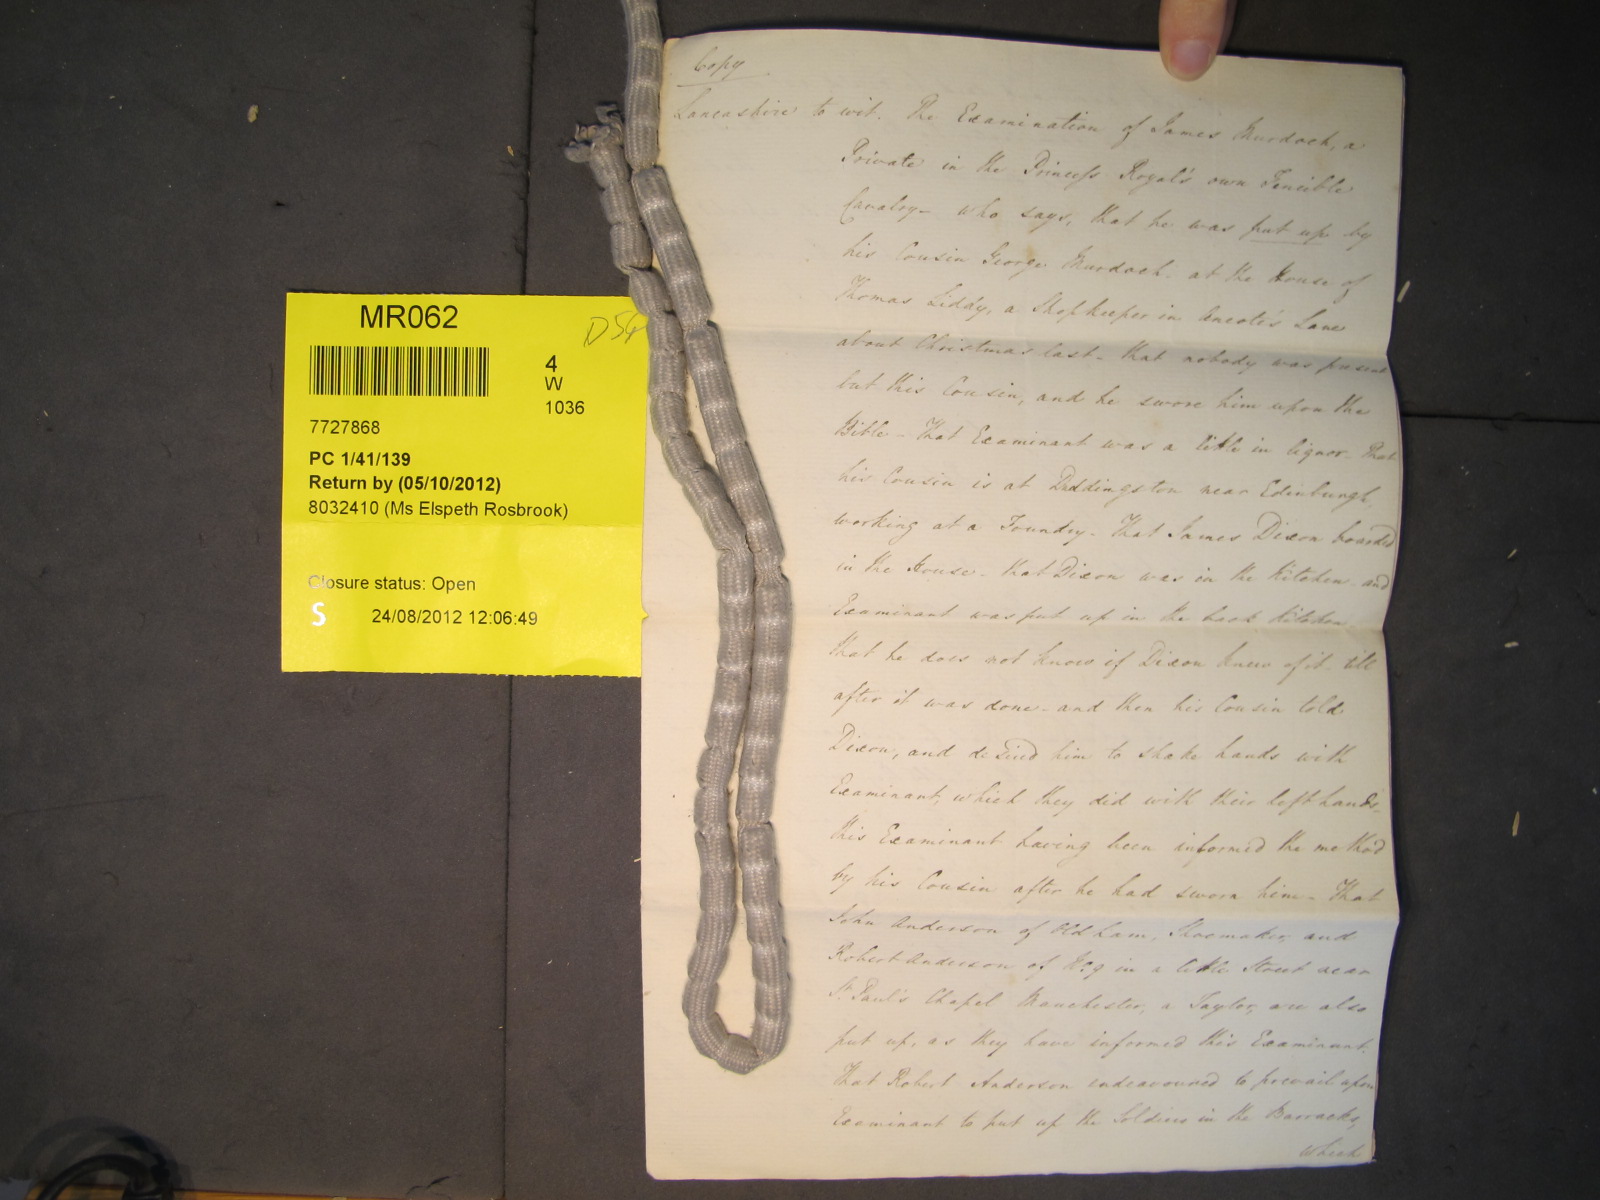 MR062
D54
4
W
1036
7727868
PC 1/41/139
Return by (05/10/2012)
8032410 (Ms Elspeth Rosbrook)
Closure status: Open
S
24/08/2012 12:06:49
Copy
Lancashire to wit. The Examination of James Murdoch, a
Private in the Princess Royal's own Fencible
Cavalry - who says, that he was put up by
his Cousin George Murdoch. at the House of
Thomas Liddy, a Shopkeeper in Ancote's Lane
about Christmas last - that nobody was present
but this Cousin, and he swore him upon the
Bible - That Examinant was a little in liquor - that
his Cousin is at Duddingston near Edinburgh,
working at a Foundry - That James Dixon boarded
in the House - that Dixon was in the Kitchen - and
Examinant was put up in the back Kitchen
that he does not know if Dixon knew of it - till
after it was done - and then his Cousin told
Dixon, and desired him to shake hands with
Examinant, which they did with their left hands -
this Examinant having been informed the method
by his Cousin after he had sworn him - That
John Anderson of Oldham, Shoemaker, and
Robert Anderson of No. 9 in a little Street near
St. Paul's Chapel Manchester, a Taylor, are also
put up, as they have informed this Examinant.
That Robert Anderson endeavoured to prevail upon
Examinant to put up the Soldiers in the Barracks,
which